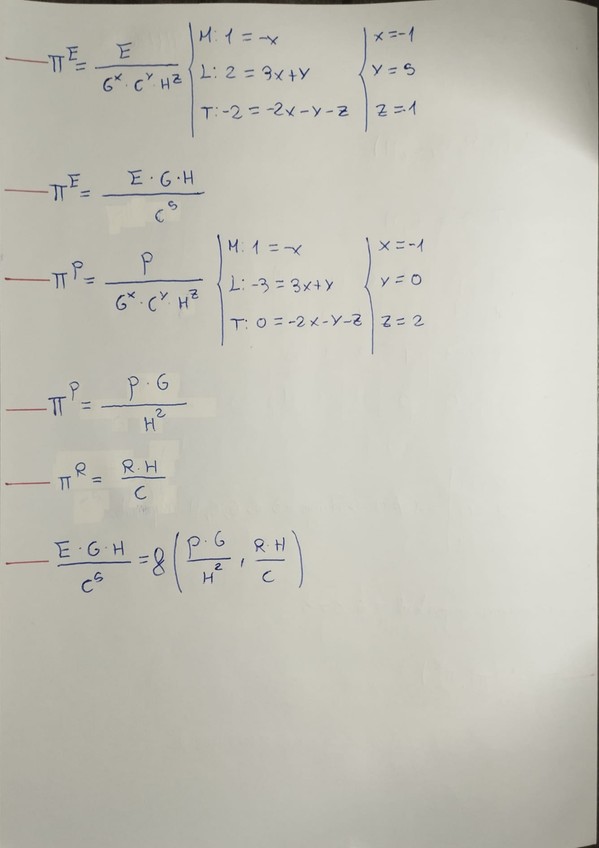 π^E = E / (G^x · C^y · H^z) { M: 1 = -x { x = -1
L: 2 = 3x+y y = 5
T: -2 = -2x-y-z z = -1
π^E = (E · G · H) / C^5
π^P = P / (G^x · C^y · H^z) { M: 1 = -x { x = -1
L: -3 = 3x+y y = 0
T: 0 = -2x-y-z z = 2
π^P = (P · G) / H^2
π^R = (R · H) / C
(E · G · H) / C^5 = f((P · G) / H^2, (R · H) / C)